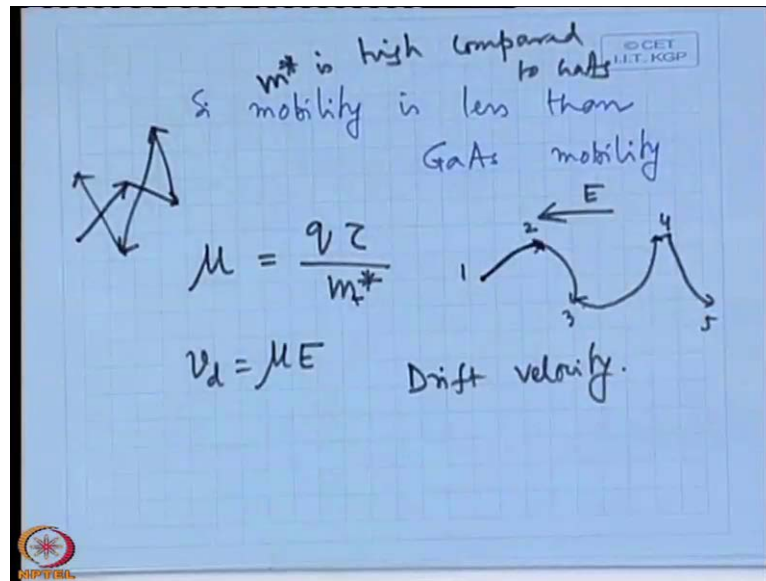 m* is high compared
to GaAs
© CET
I.I.T. KGP
Si mobility is less than
GaAs mobility
μ = qτ / m*
E
1 2 3 4 5
v_d = μE
Drift velocity.
NPTEL